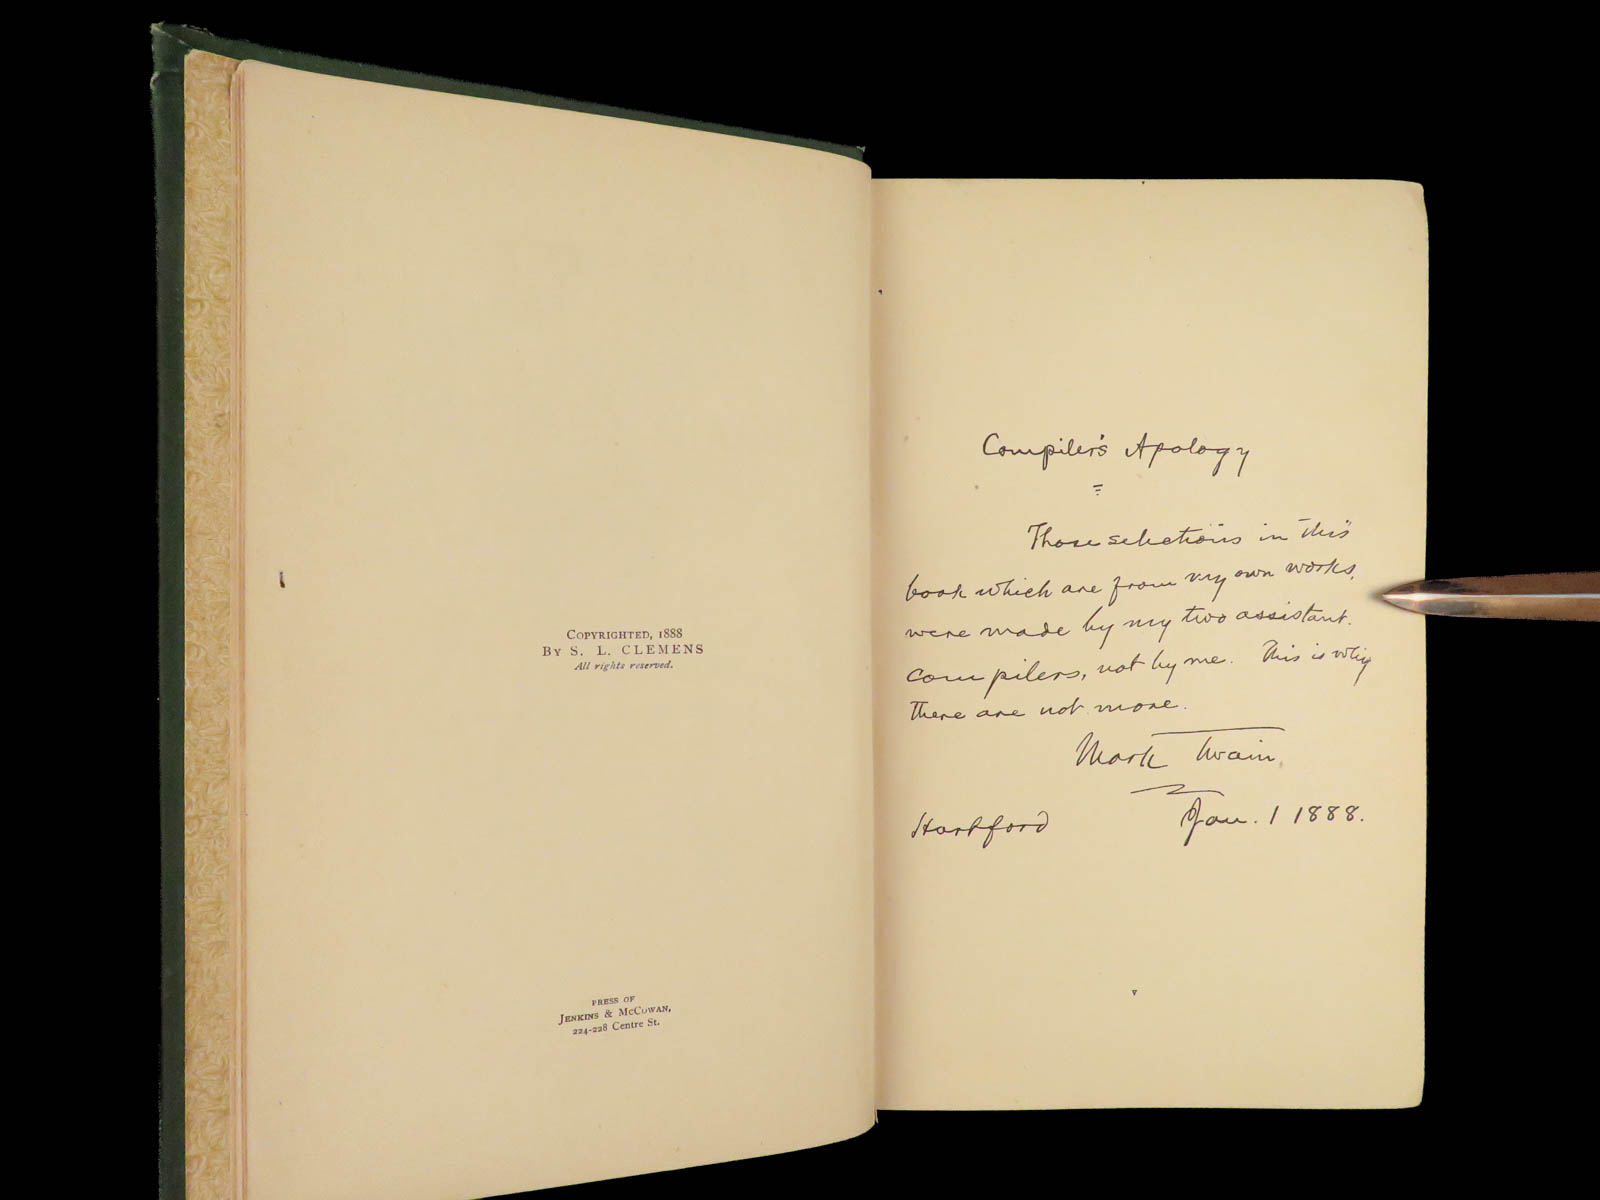 COPYRIGHTED, 1888
BY S. L. CLEMENS
All rights reserved.
PRESS OF
JENKINS & MCCOWAN,
224-228 Centre St.
Compiler's Apology
Those selections in this
book which are from my own works,
were made by my two assistant
compilers, not by me. This is why
there are not more.
Mark Twain
Hartford Jan. 1 1888.
v